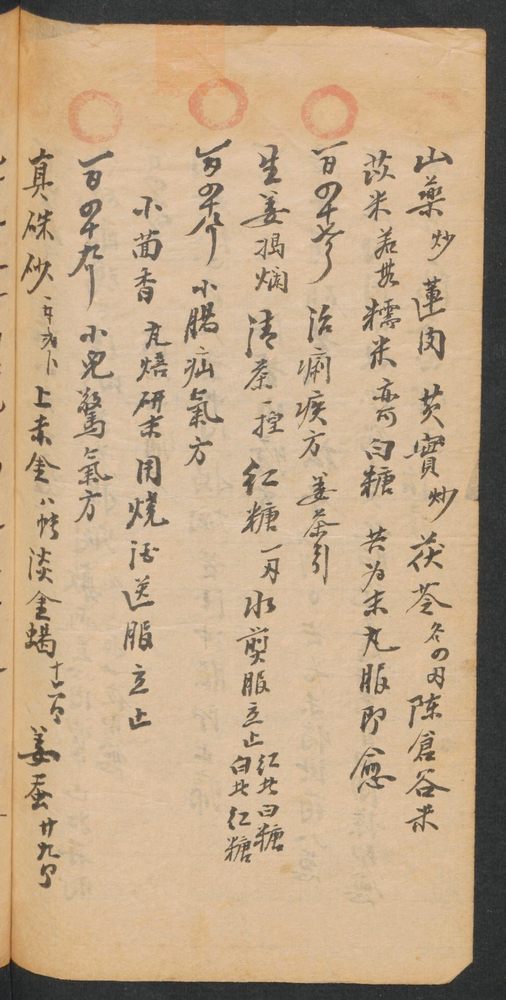 山藥炒 蓮肉 芡實炒 茯苓各四刄 陈倉谷米
苡米 若無糯米亦可 白糖 共为末丸服即愈
一百四十七号 治痢疾方 姜茶引
生姜搗爛 清茶一控 红糖一刄 水煎服立止 红北白糖 白北红糖
一百四十八号 小腸疝氣方
小茴香 丸焙研末 用燒酒送服立止
一百四十九号 小児驚氣方
真硃砂 上赤金八帖 淡全蝎十一个 姜蚕廿九个